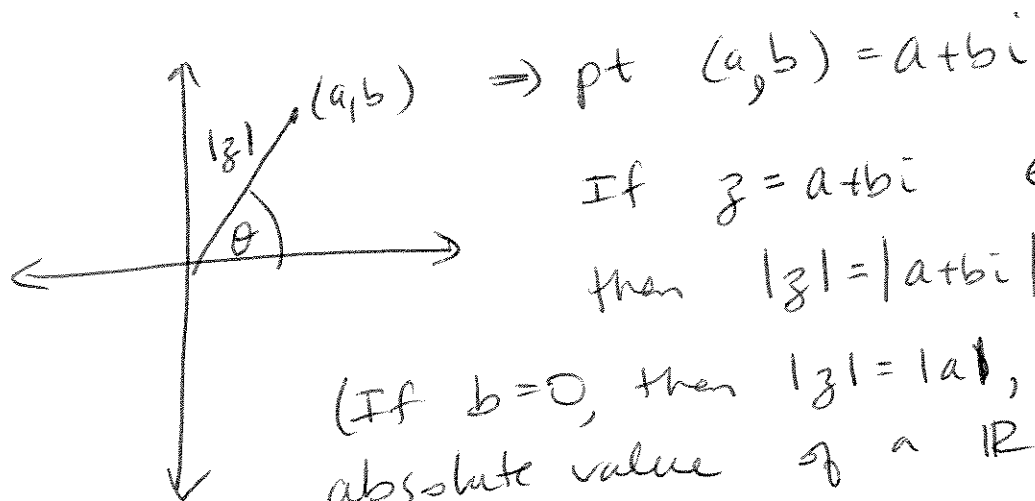 (a,b) ⇒ pt (a,b) = a+bi
|z|
θ
If z = a+bi
then |z| = |a+bi|
(If b=0, then |z| = |a|,
absolute value of a ℝ